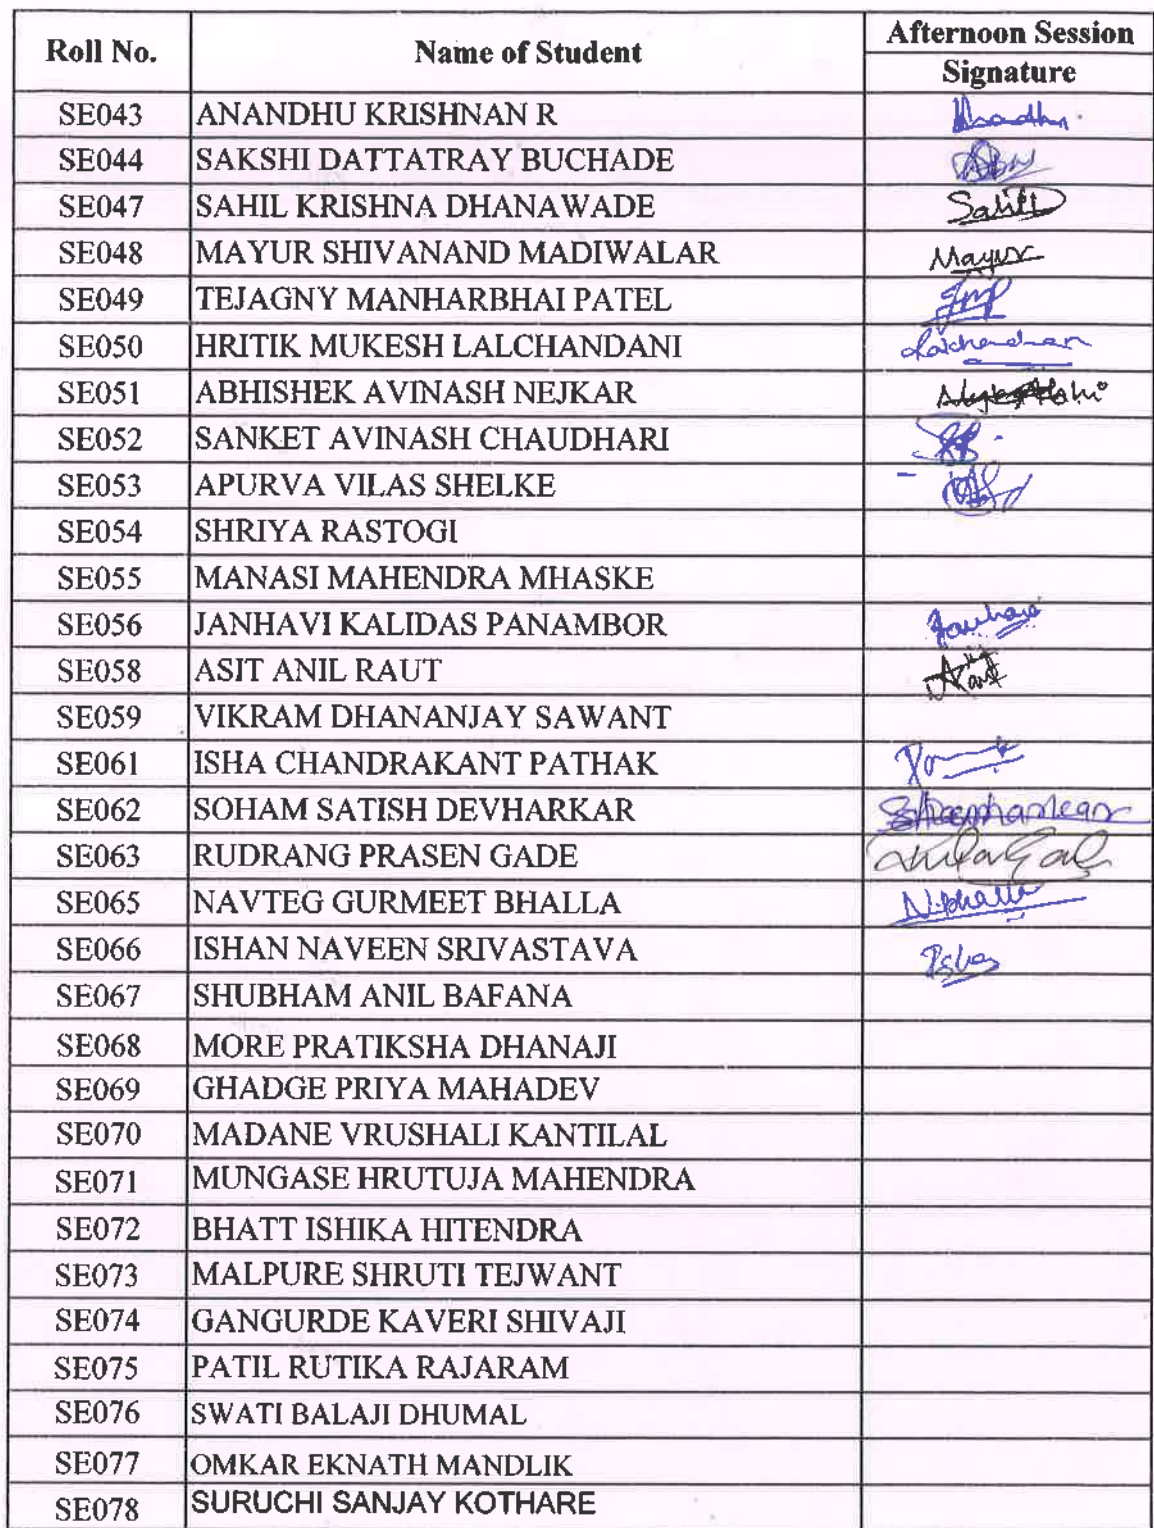 Roll No. Name of Student Afternoon Session
Signature
SE043 ANANDHU KRISHNAN R
SE044 SAKSHI DATTATRAY BUCHADE
SE047 SAHIL KRISHNA DHANAWADE Sahil
SE048 MAYUR SHIVANAND MADIWALAR Mayur
SE049 TEJAGNY MANHARBHAI PATEL
SE050 HRITIK MUKESH LALCHANDANI
SE051 ABHISHEK AVINASH NEJKAR
SE052 SANKET AVINASH CHAUDHARI
SE053 APURVA VILAS SHELKE
SE054 SHRIYA RASTOGI
SE055 MANASI MAHENDRA MHASKE
SE056 JANHAVI KALIDAS PANAMBOR
SE058 ASIT ANIL RAUT
SE059 VIKRAM DHANANJAY SAWANT
SE061 ISHA CHANDRAKANT PATHAK
SE062 SOHAM SATISH DEVHARKAR
SE063 RUDRANG PRASEN GADE
SE065 NAVTEG GURMEET BHALLA N.Bhalla
SE066 ISHAN NAVEEN SRIVASTAVA
SE067 SHUBHAM ANIL BAFANA
SE068 MORE PRATIKSHA DHANAJI
SE069 GHADGE PRIYA MAHADEV
SE070 MADANE VRUSHALI KANTILAL
SE071 MUNGASE HRUTUJA MAHENDRA
SE072 BHATT ISHIKA HITENDRA
SE073 MALPURE SHRUTI TEJWANT
SE074 GANGURDE KAVERI SHIVAJI
SE075 PATIL RUTIKA RAJARAM
SE076 SWATI BALAJI DHUMAL
SE077 OMKAR EKNATH MANDLIK
SE078 SURUCHI SANJAY KOTHARE